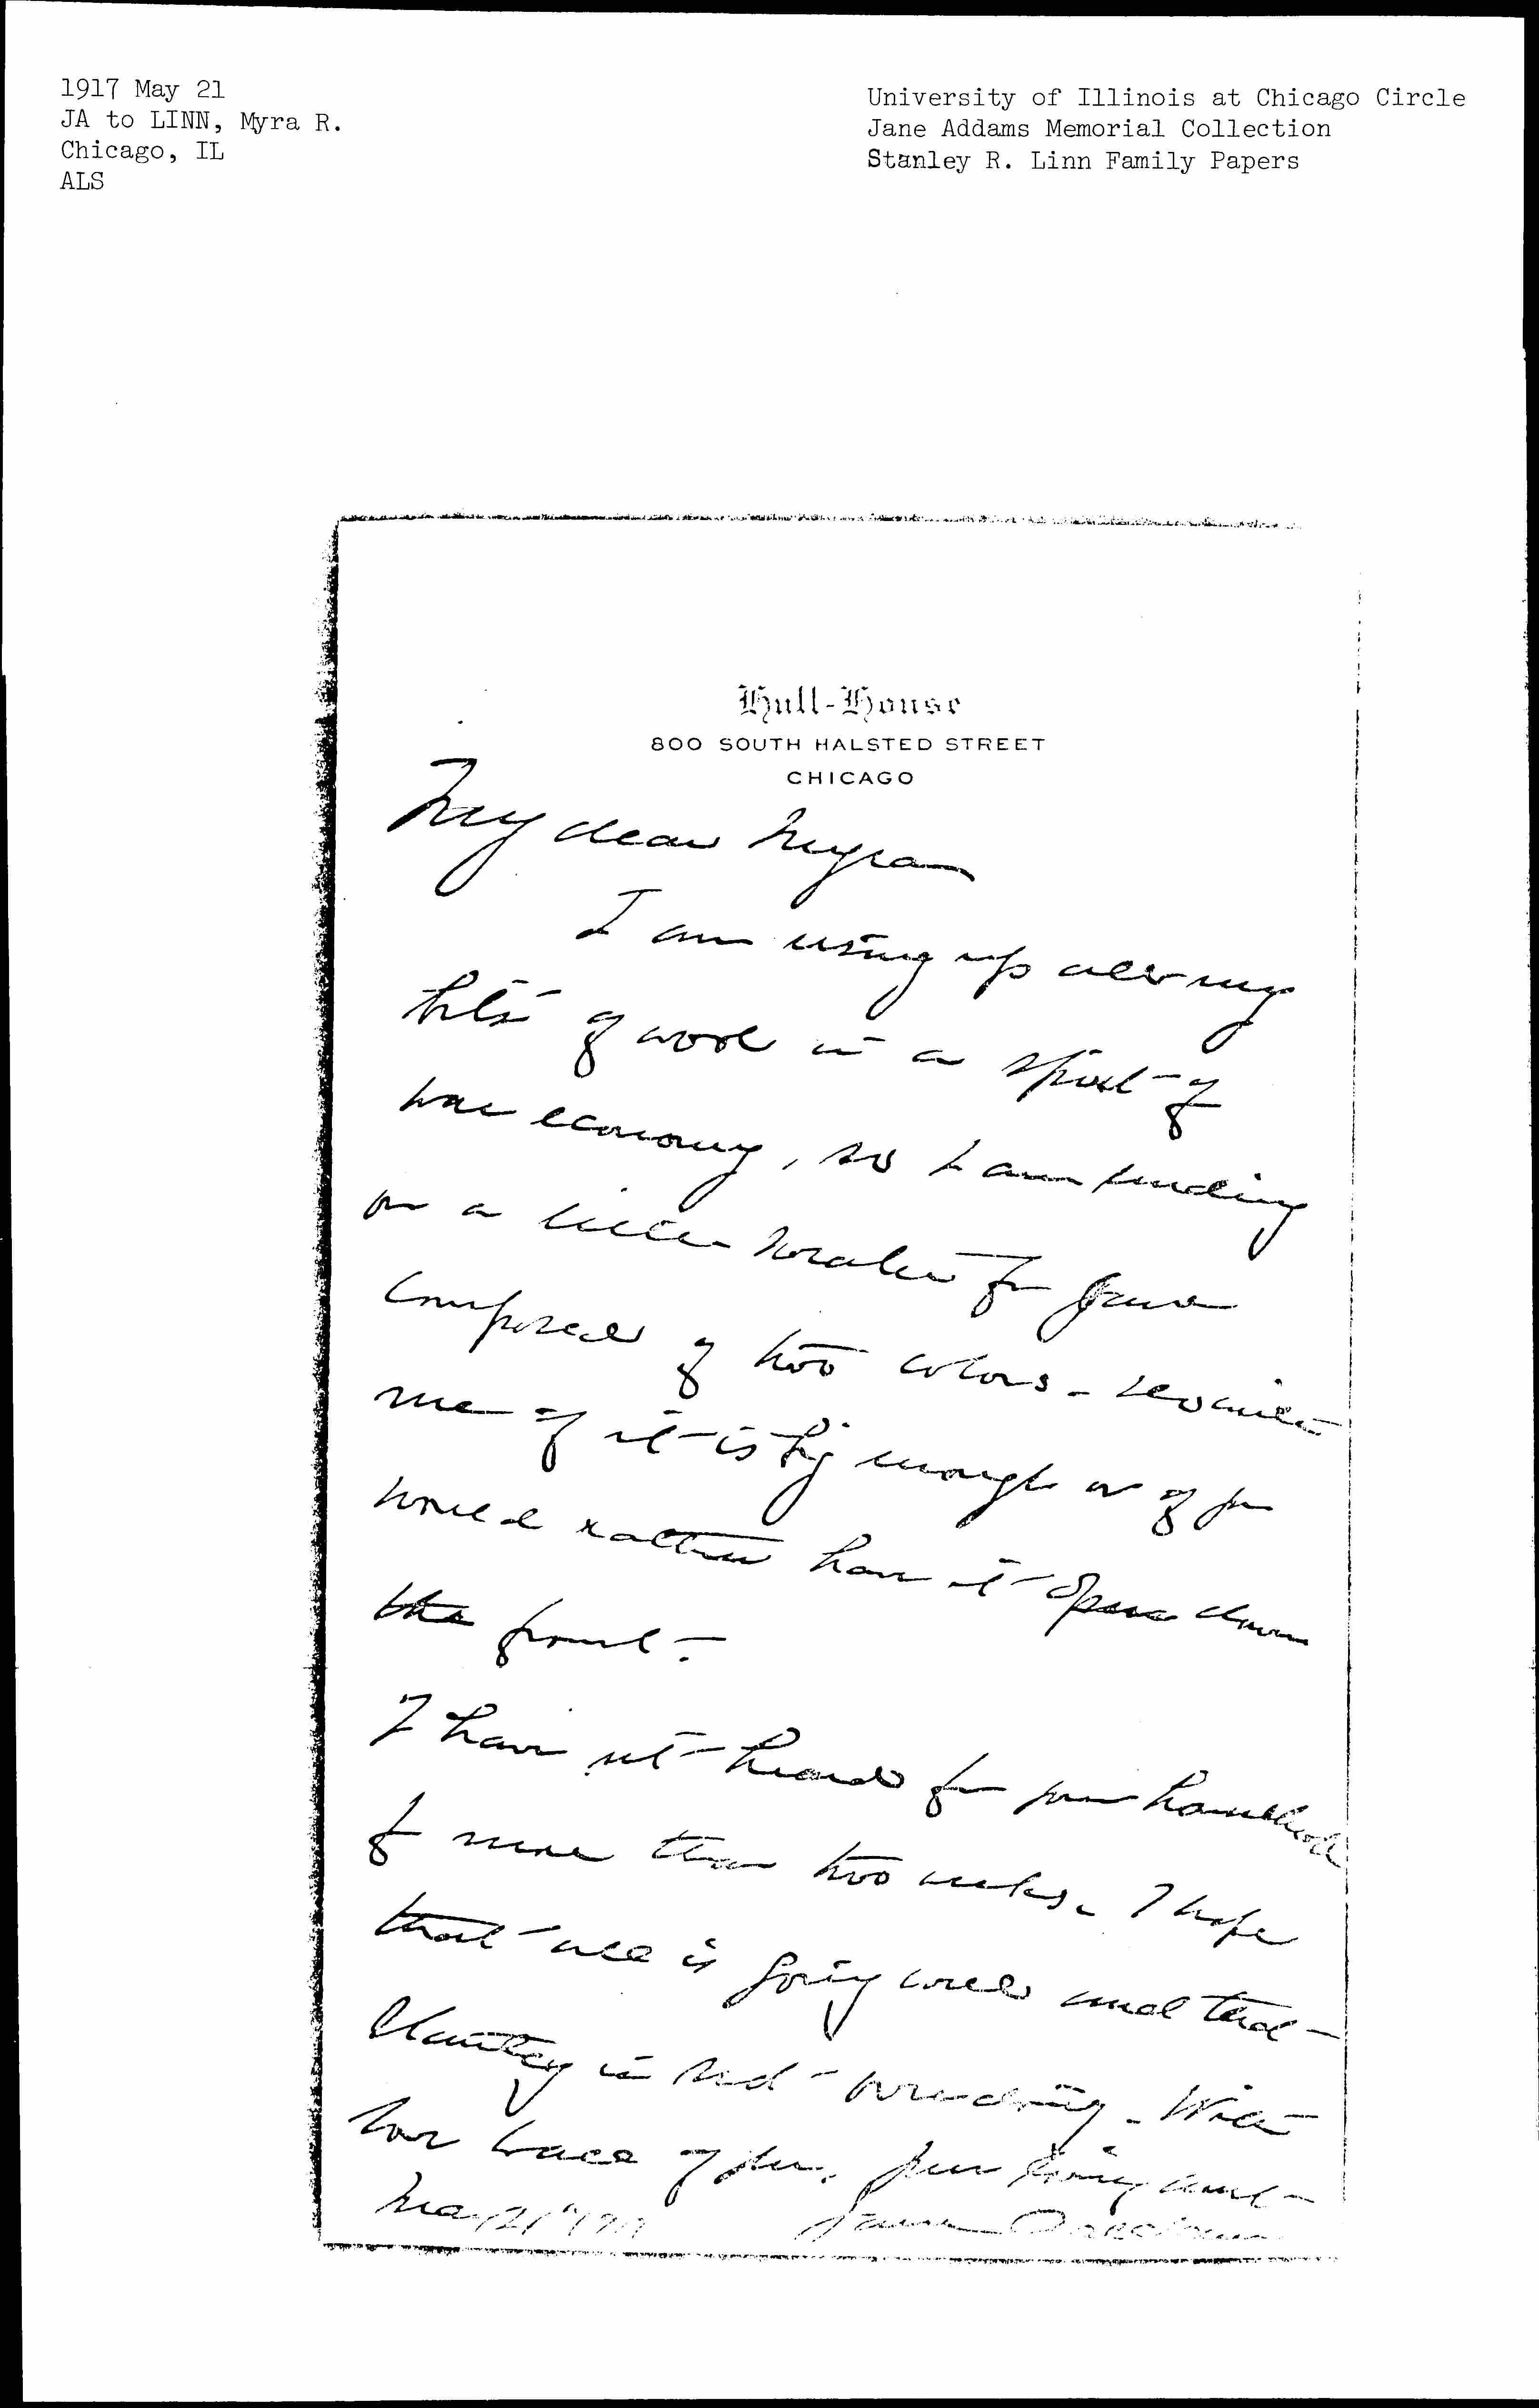 1917 May 21
JA to LINN, Myra R.
Chicago, IL
ALS
University of Illinois at Chicago Circle
Jane Addams Memorial Collection
Stanley R. Linn Family Papers
Hull-House
800 SOUTH HALSTED STREET
CHICAGO
My dear Myra
I am using up all my
bits of wool in a spirit of
war economy, so I am sending
on a little sweater for Jane
composed of two colors -
me if it is big enough or if you
would rather have it open down
the front -
I have not heard from your household
for more than two weeks. I hope
that all is going well and that
Stanley is not working. With
love to all of you, your loving aunt
May 21" 1917 Jane Addams